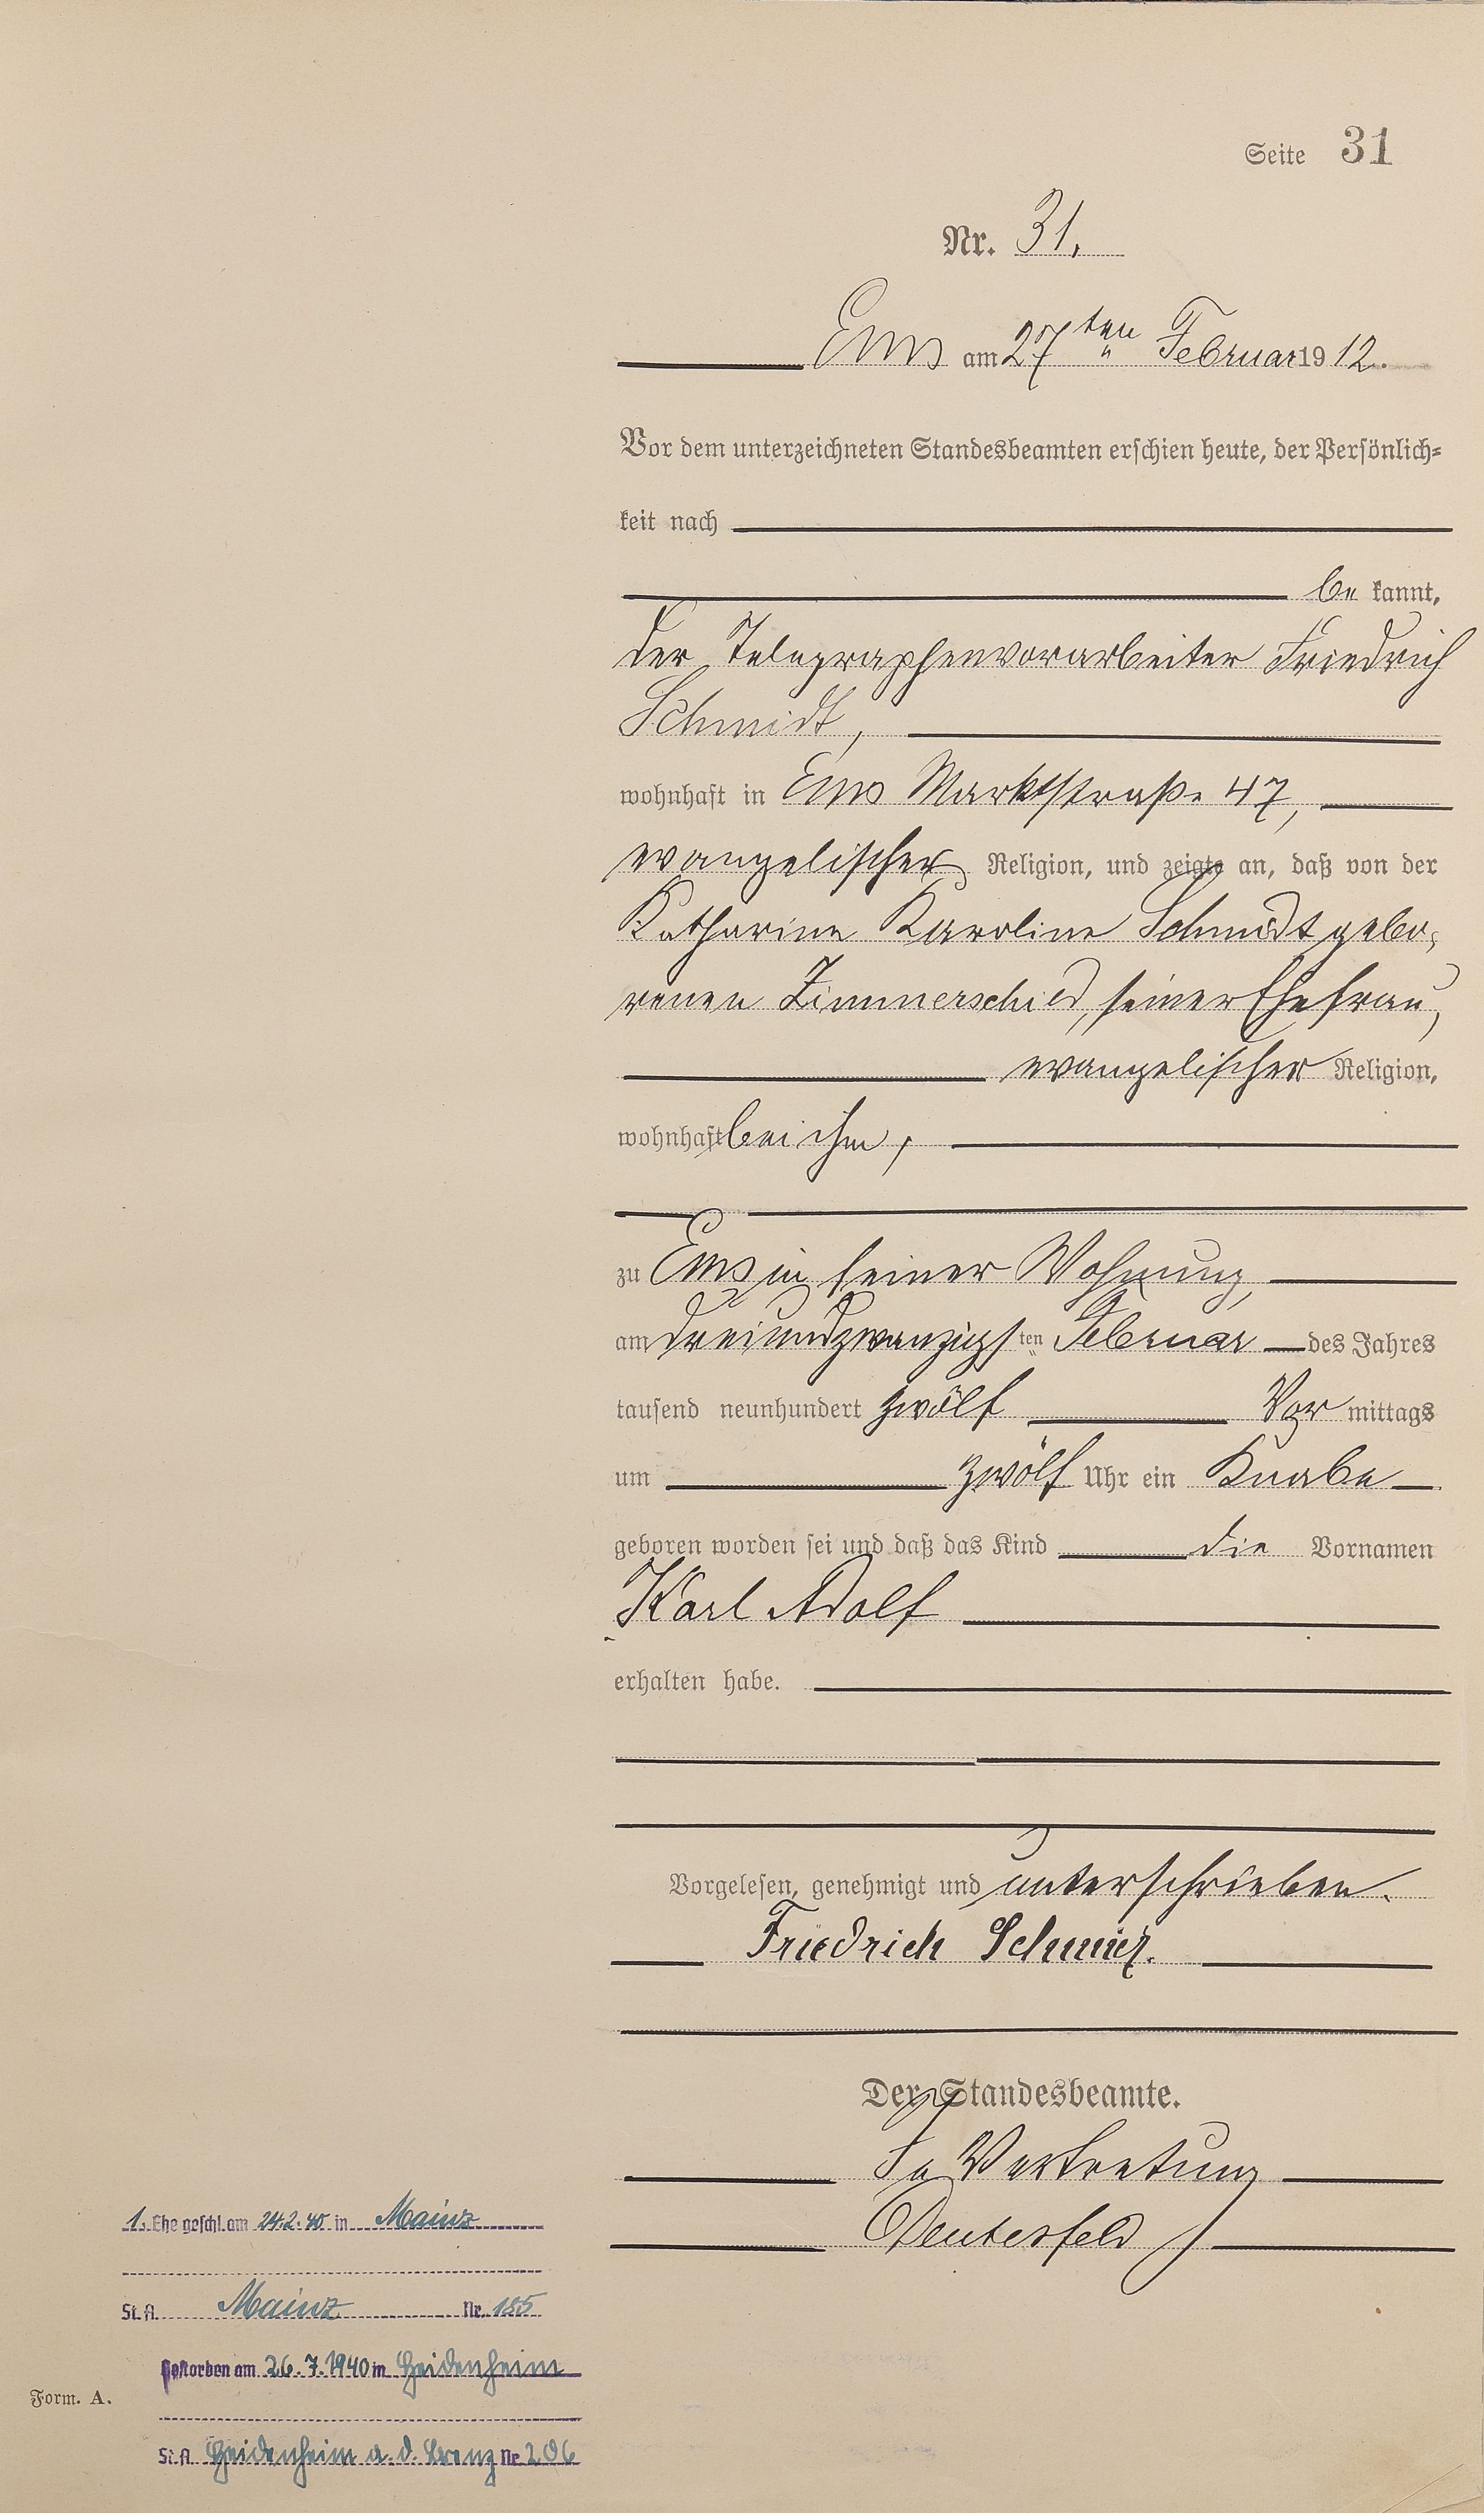 Seite 31
Nr. 31.
Ems am 27ten Februar 1912.
Vor dem unterzeichneten Standesbeamten erschien heute, der Persönlich-
keit nach
be kannt,
der Telegraphenvorarbeiter Friedrich
Schmidt,
wohnhaft in Ems Marktstraße 47,
evangelischer Religion, und zeigte an, daß von der
Katharine Karoline Schmidt gebo-
renen Zimmerschied, seiner Ehefrau,
evangelischer Religion,
wohnhaft bei ihm,
zu Ems in seiner Wohnung,
am dreiundzwanzigsten Februar des Jahres
tausend neunhundert zwölf Vor mittags
um zwölf Uhr ein Knabe
geboren worden sei und daß das Kind die Vornamen
Karl Adolf
erhalten habe.
Vorgelesen, genehmigt und unterschrieben.
Friedrich Schmidt.
Der Standesbeamte.
In Vertretung
1. Ehe geschl. am 24.2.40 in Mainz
St. A. Mainz Nr. 185
Gestorben am 26.7.1940 in Heidenheim
Form. A.
St. A. Heidenheim a. d. Brenz Nr. 206